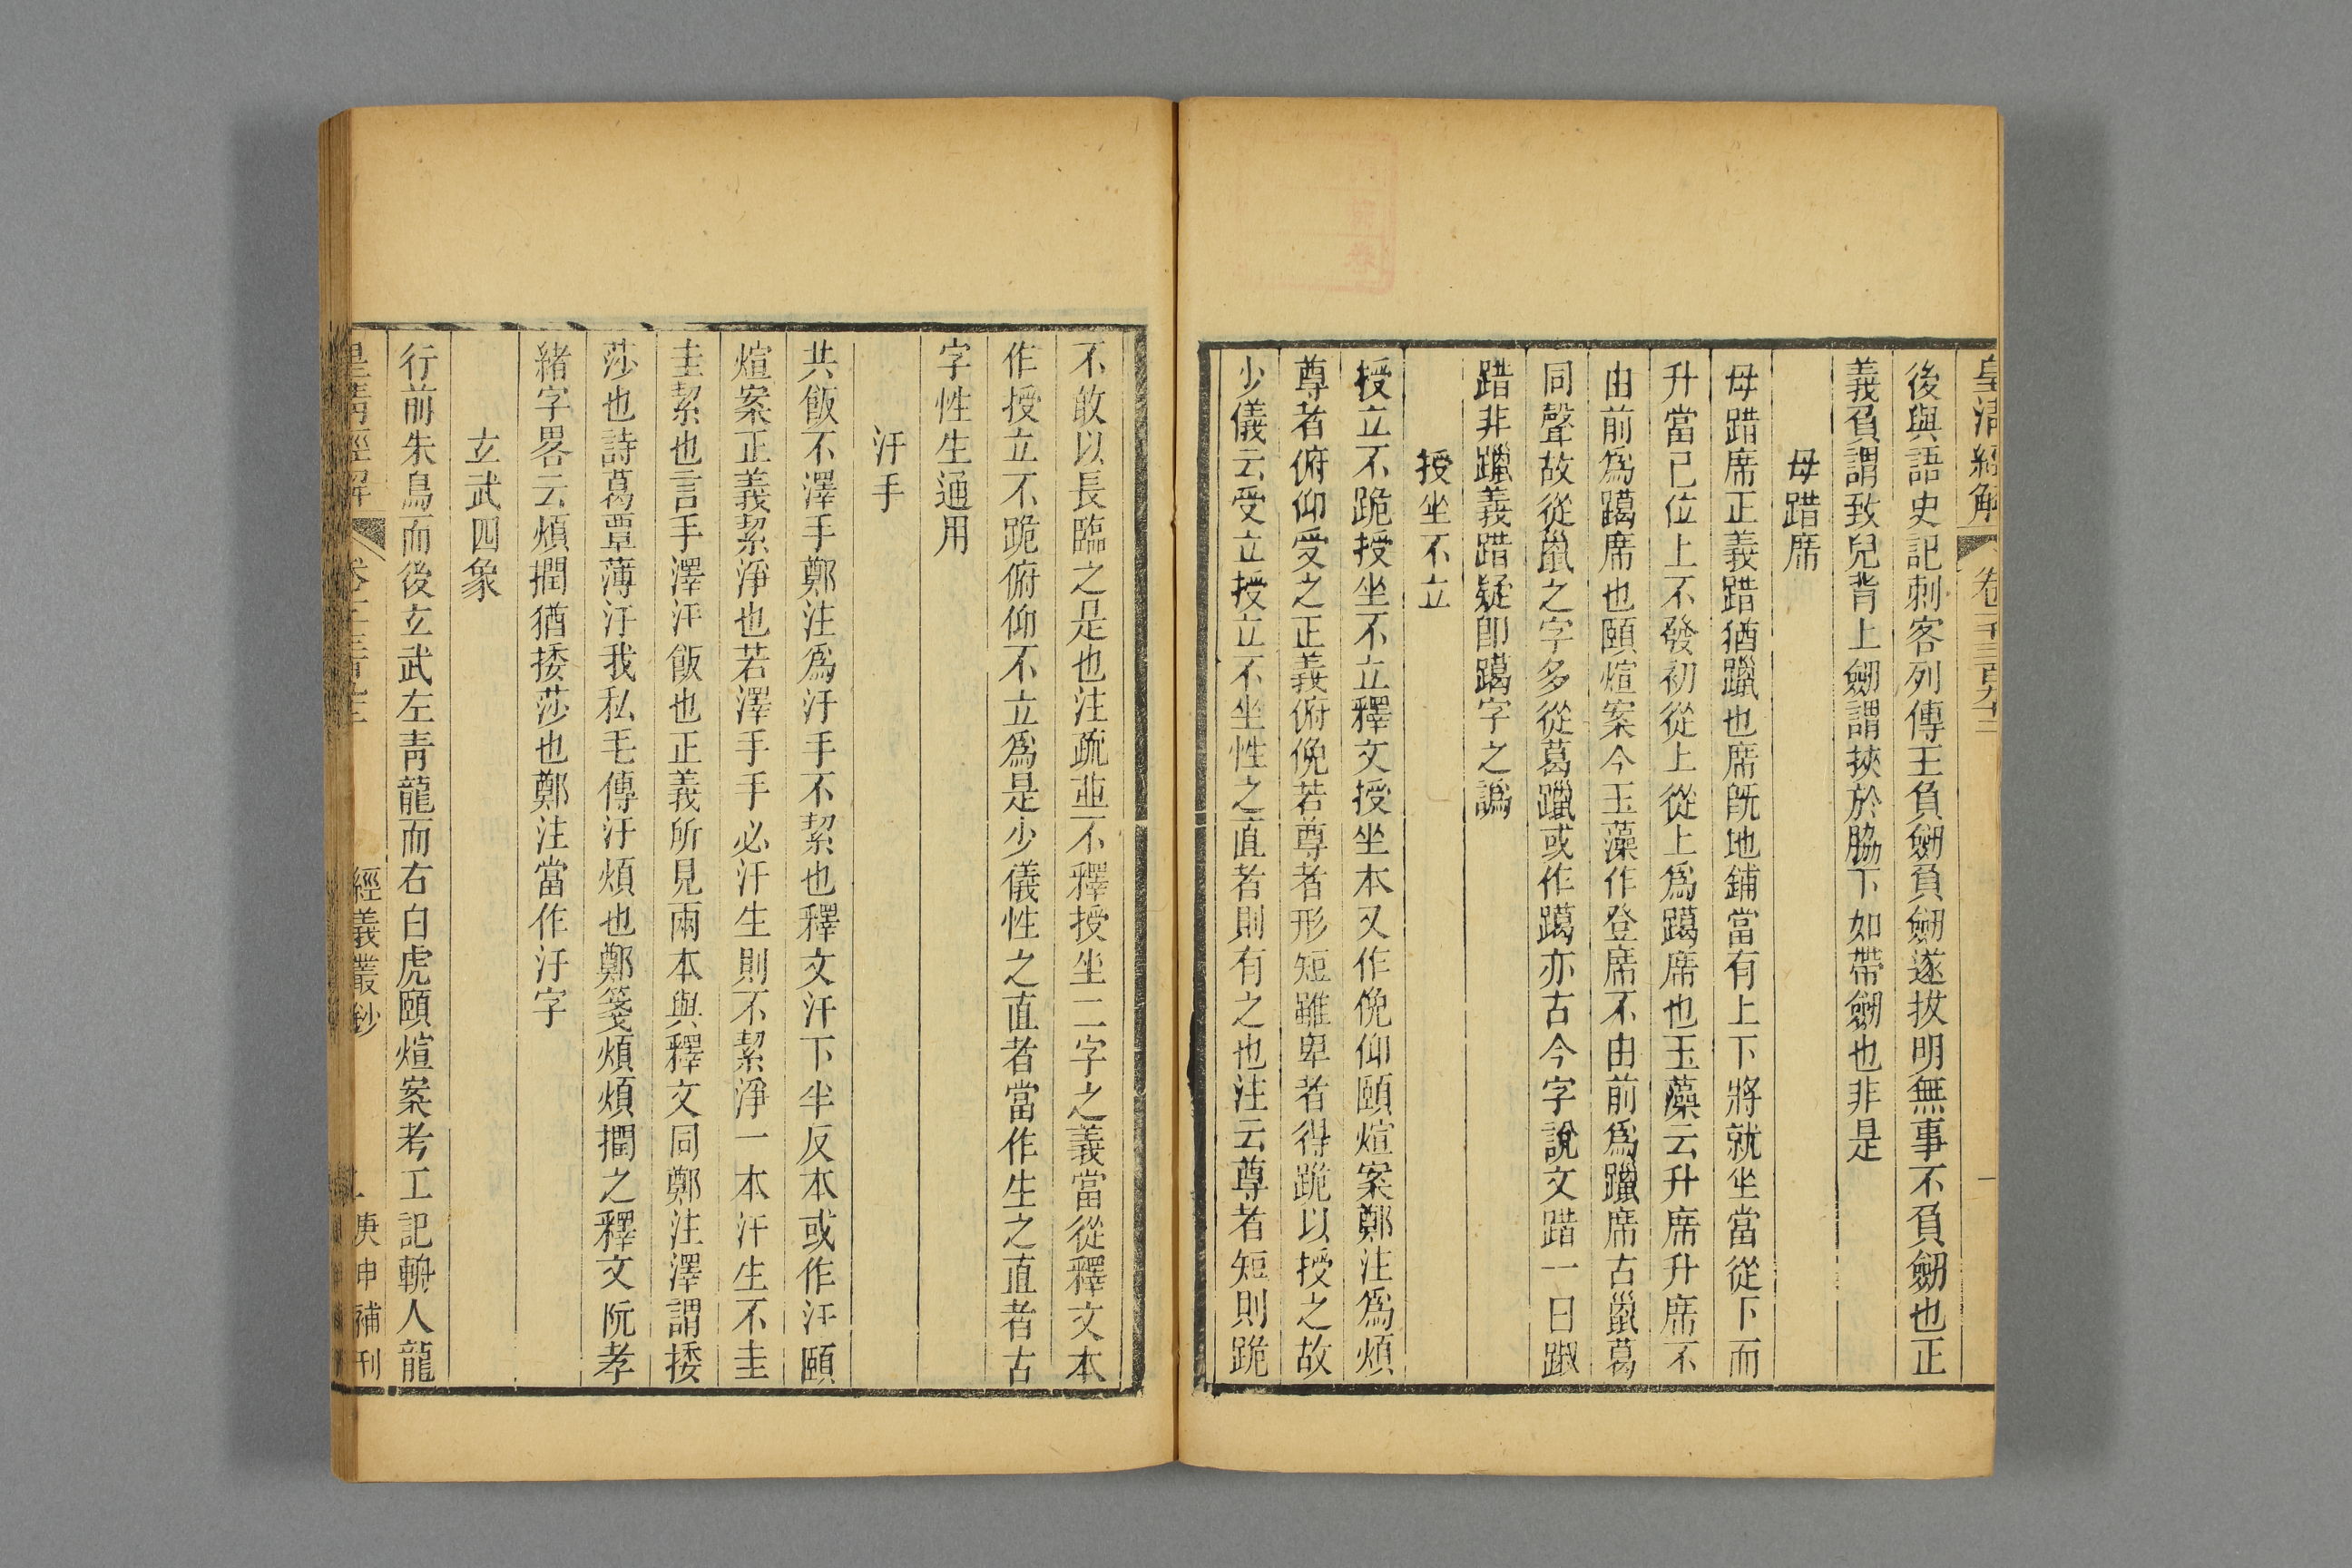 皇清經解 卷千三百九十三 一
後與語史記刺客列傳王負劒負劒遂拔明無事不負劒也正
義負謂致兒背上劒謂挾於脇下如帶劒也非是
毋踖席
毋踖席正義踖猶躐也席旣地鋪當有上下將就坐當從下而
升當己位上不發初從上從上爲躐席也玉藻云升席升席不
由前爲躐席也頤煊案今玉藻作登席不由前爲躐席古巤葛
同聲故從巤之字多從葛躐或作躢亦古今字說文踖一曰踧
踖非躐義踖疑卽躢字之譌
授坐不立
授立不跪授坐不立釋文授坐本又作俛仰頤煊案鄭注爲煩
尊者俯仰受之正義俯俛若尊者形短雖卑者得跪以授之故
少儀云受立授立不坐性之直者則有之也注云尊者短則跪
不敢以長臨之是也注疏並不釋授坐二字之義當從釋文本
作授立不跪俯仰不立爲是少儀性之直者當作生之直者古
字性生通用
汙手
共飯不澤手鄭注爲汙手不絜也釋文汗下半反本或作汙頤
煊案正義絜淨也若澤手手必汗生則不絜淨一本汗生不圭
圭絜也言手澤汙飯也正義所見兩本與釋文同鄭注澤謂捼
莎也詩葛覃薄汙我私毛傳汙煩也鄭箋煩煩撋之釋文阮孝
緒字畧云煩撋猶捼莎也鄭注當作汙字
玄武四象
行前朱鳥而後玄武左青龍而右白虎頤煊案考工記輈人龍
經義叢鈔 庚申補刊